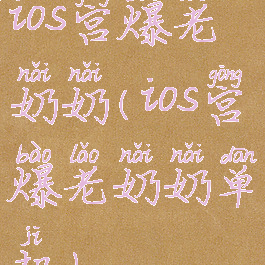 ios宫爆老
nǎi nǎi gōng
奶奶(ios宫
bào lǎo nǎi nǎi dān
爆老奶奶单
jī
机)